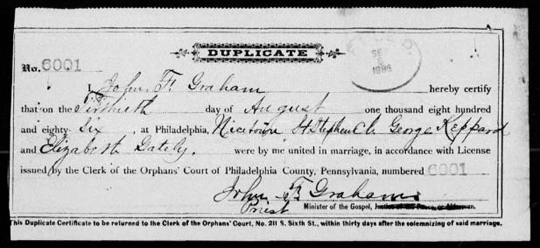 DUPLICATE
No. 6001
SE
1886
John. F. Graham hereby certify
that on the Thirtieth day of August one thousand eight hundred
and eighty- Six , at Philadelphia, Nicetown St Stephen Ch George Keppard
and Elizabeth Gately. were by me united in marriage, in accordance with License
issued by the Clerk of the Orphans' Court of Philadelphia County, Pennsylvania, numbered 6001
John. F. Graham
Priest Minister of the Gospel, Justice of the Peace, or Alderman.
This Duplicate Certificate to be returned to the Clerk of the Orphans' Court, No. 211 S. Sixth St., within thirty days after the solemnizing of said marriage.